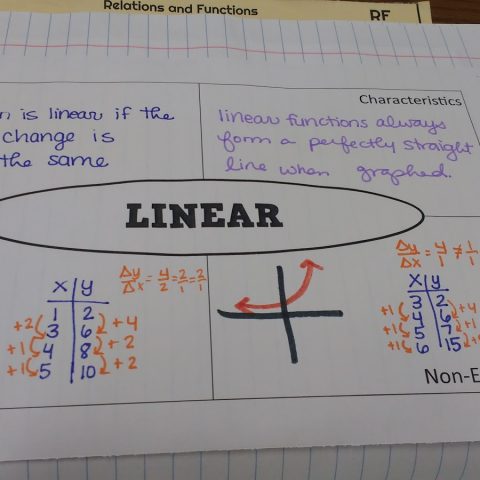 Relations and Functions
RF
n is linear if the
change is
the same
Characteristics
linear functions always
form a perfectly straight
line when graphed.
LINEAR
Δy/Δx = 4/2 = 2/1 = 2/1
x y
1 2
+2 3 6 +4
+1 4 8 +2
+1 5 10 +2
Δy/Δx = 4/1 ≠ 1/1
x y
3 2
+1 4 6 +4
+1 5 7 +1
+1 6 15
Non-E